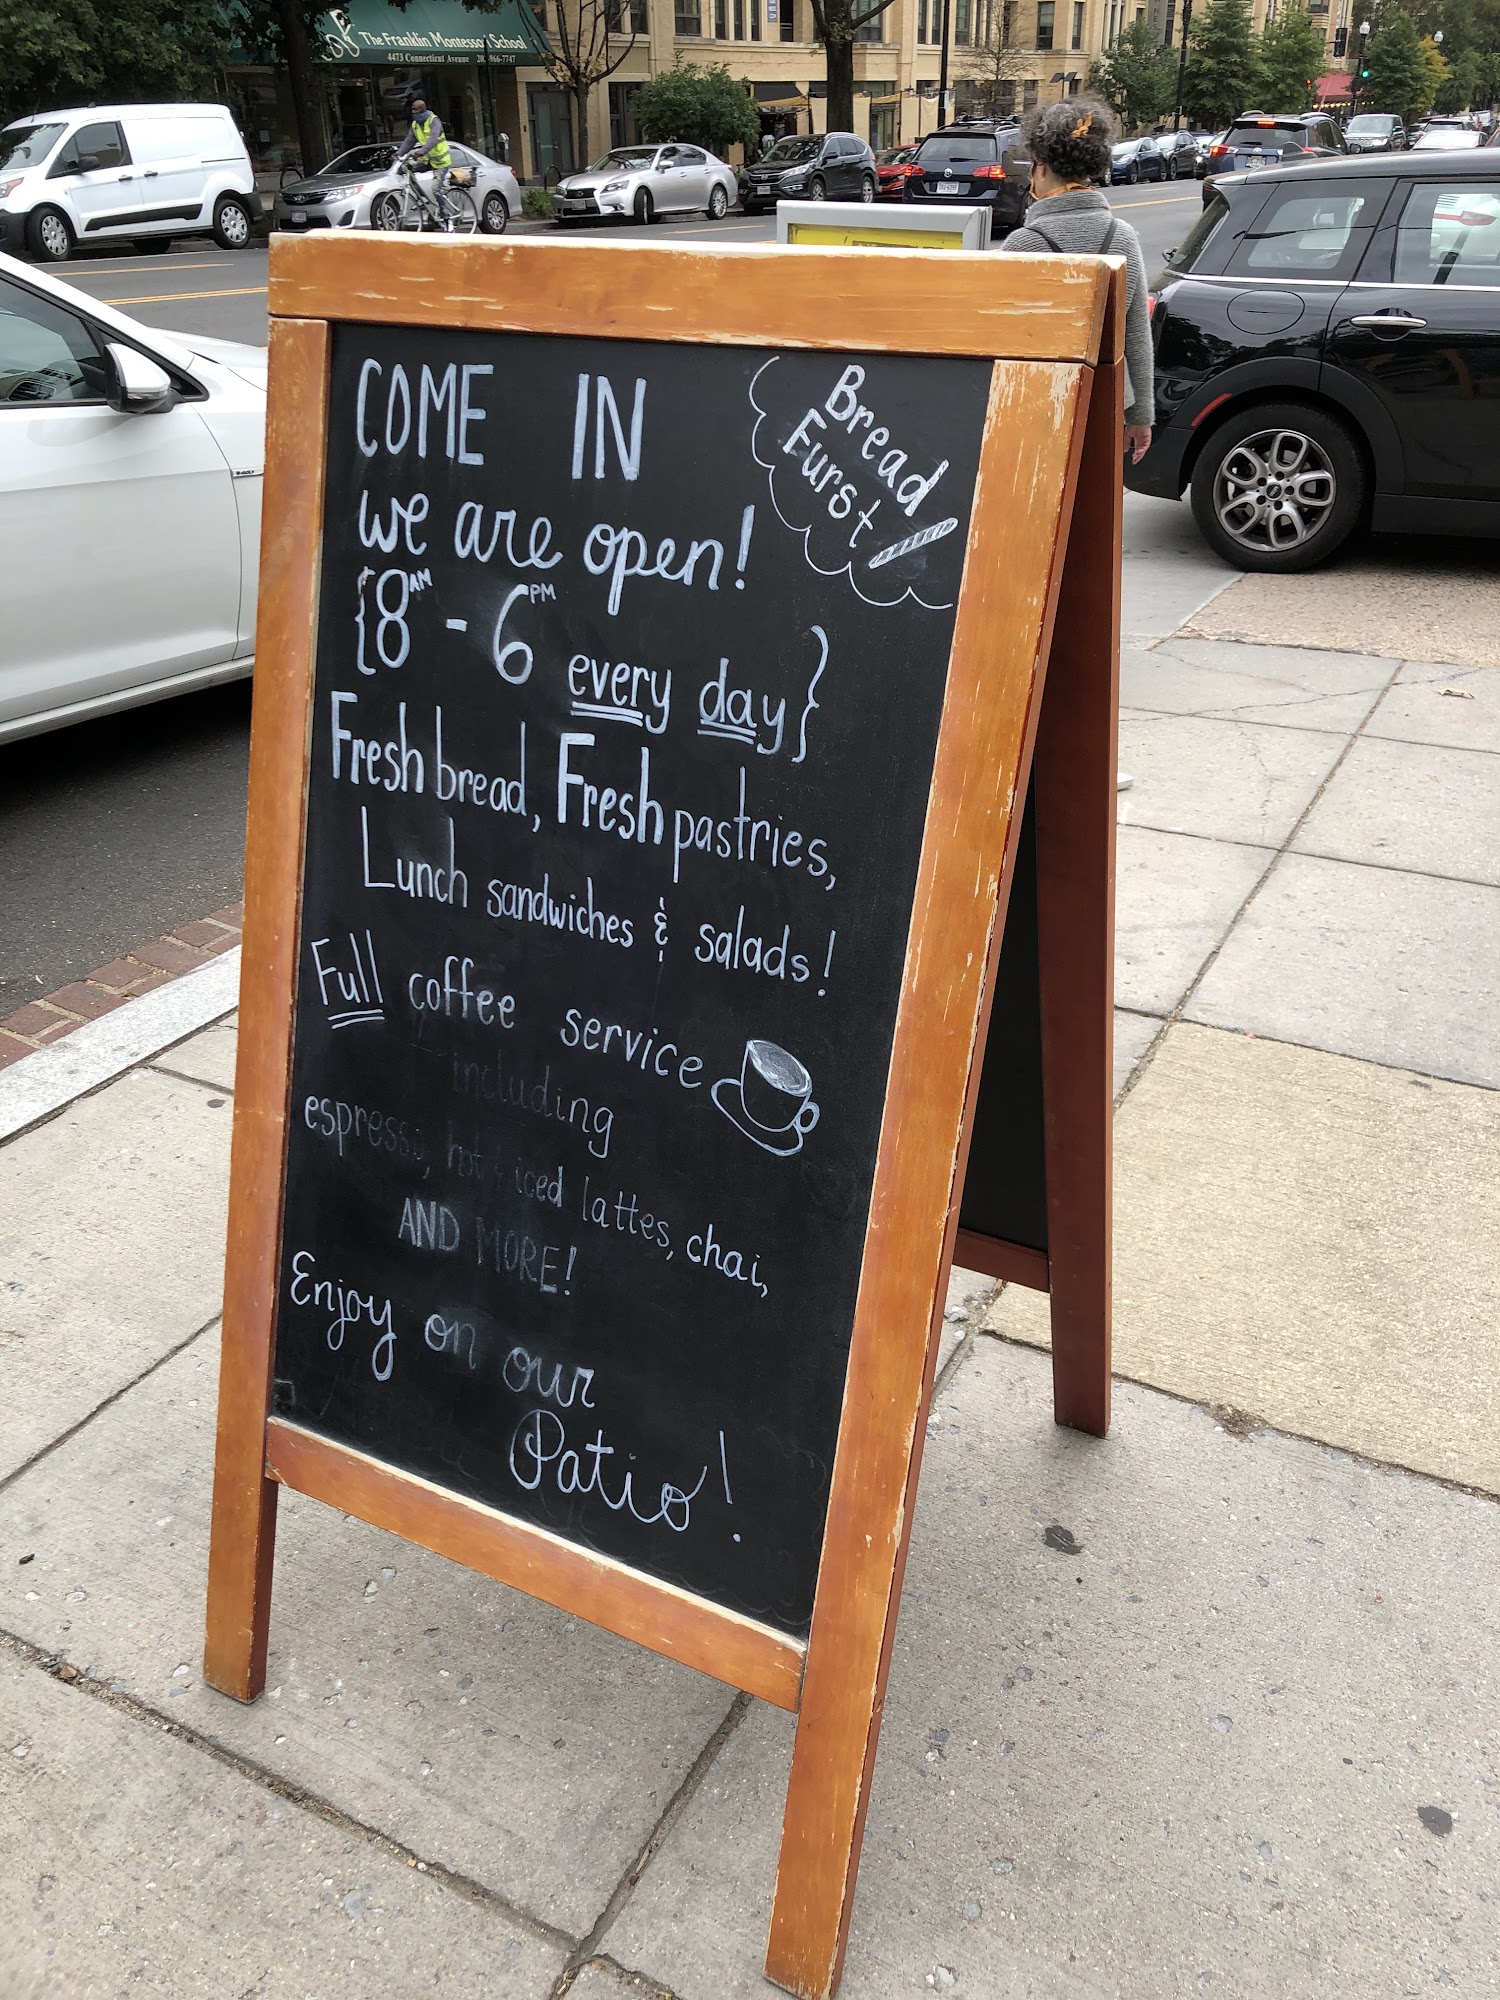 The Franklin Montessori School
4473 Connecticut Avenue 202-966-7747
COME IN
we are open!
{8AM - 6PM every day}
Bread
Furst
Fresh bread, Fresh pastries,
Lunch sandwiches & salads!
Full coffee service
including
espresso, hot & iced lattes, chai,
AND MORE!
Enjoy on our
Patio!